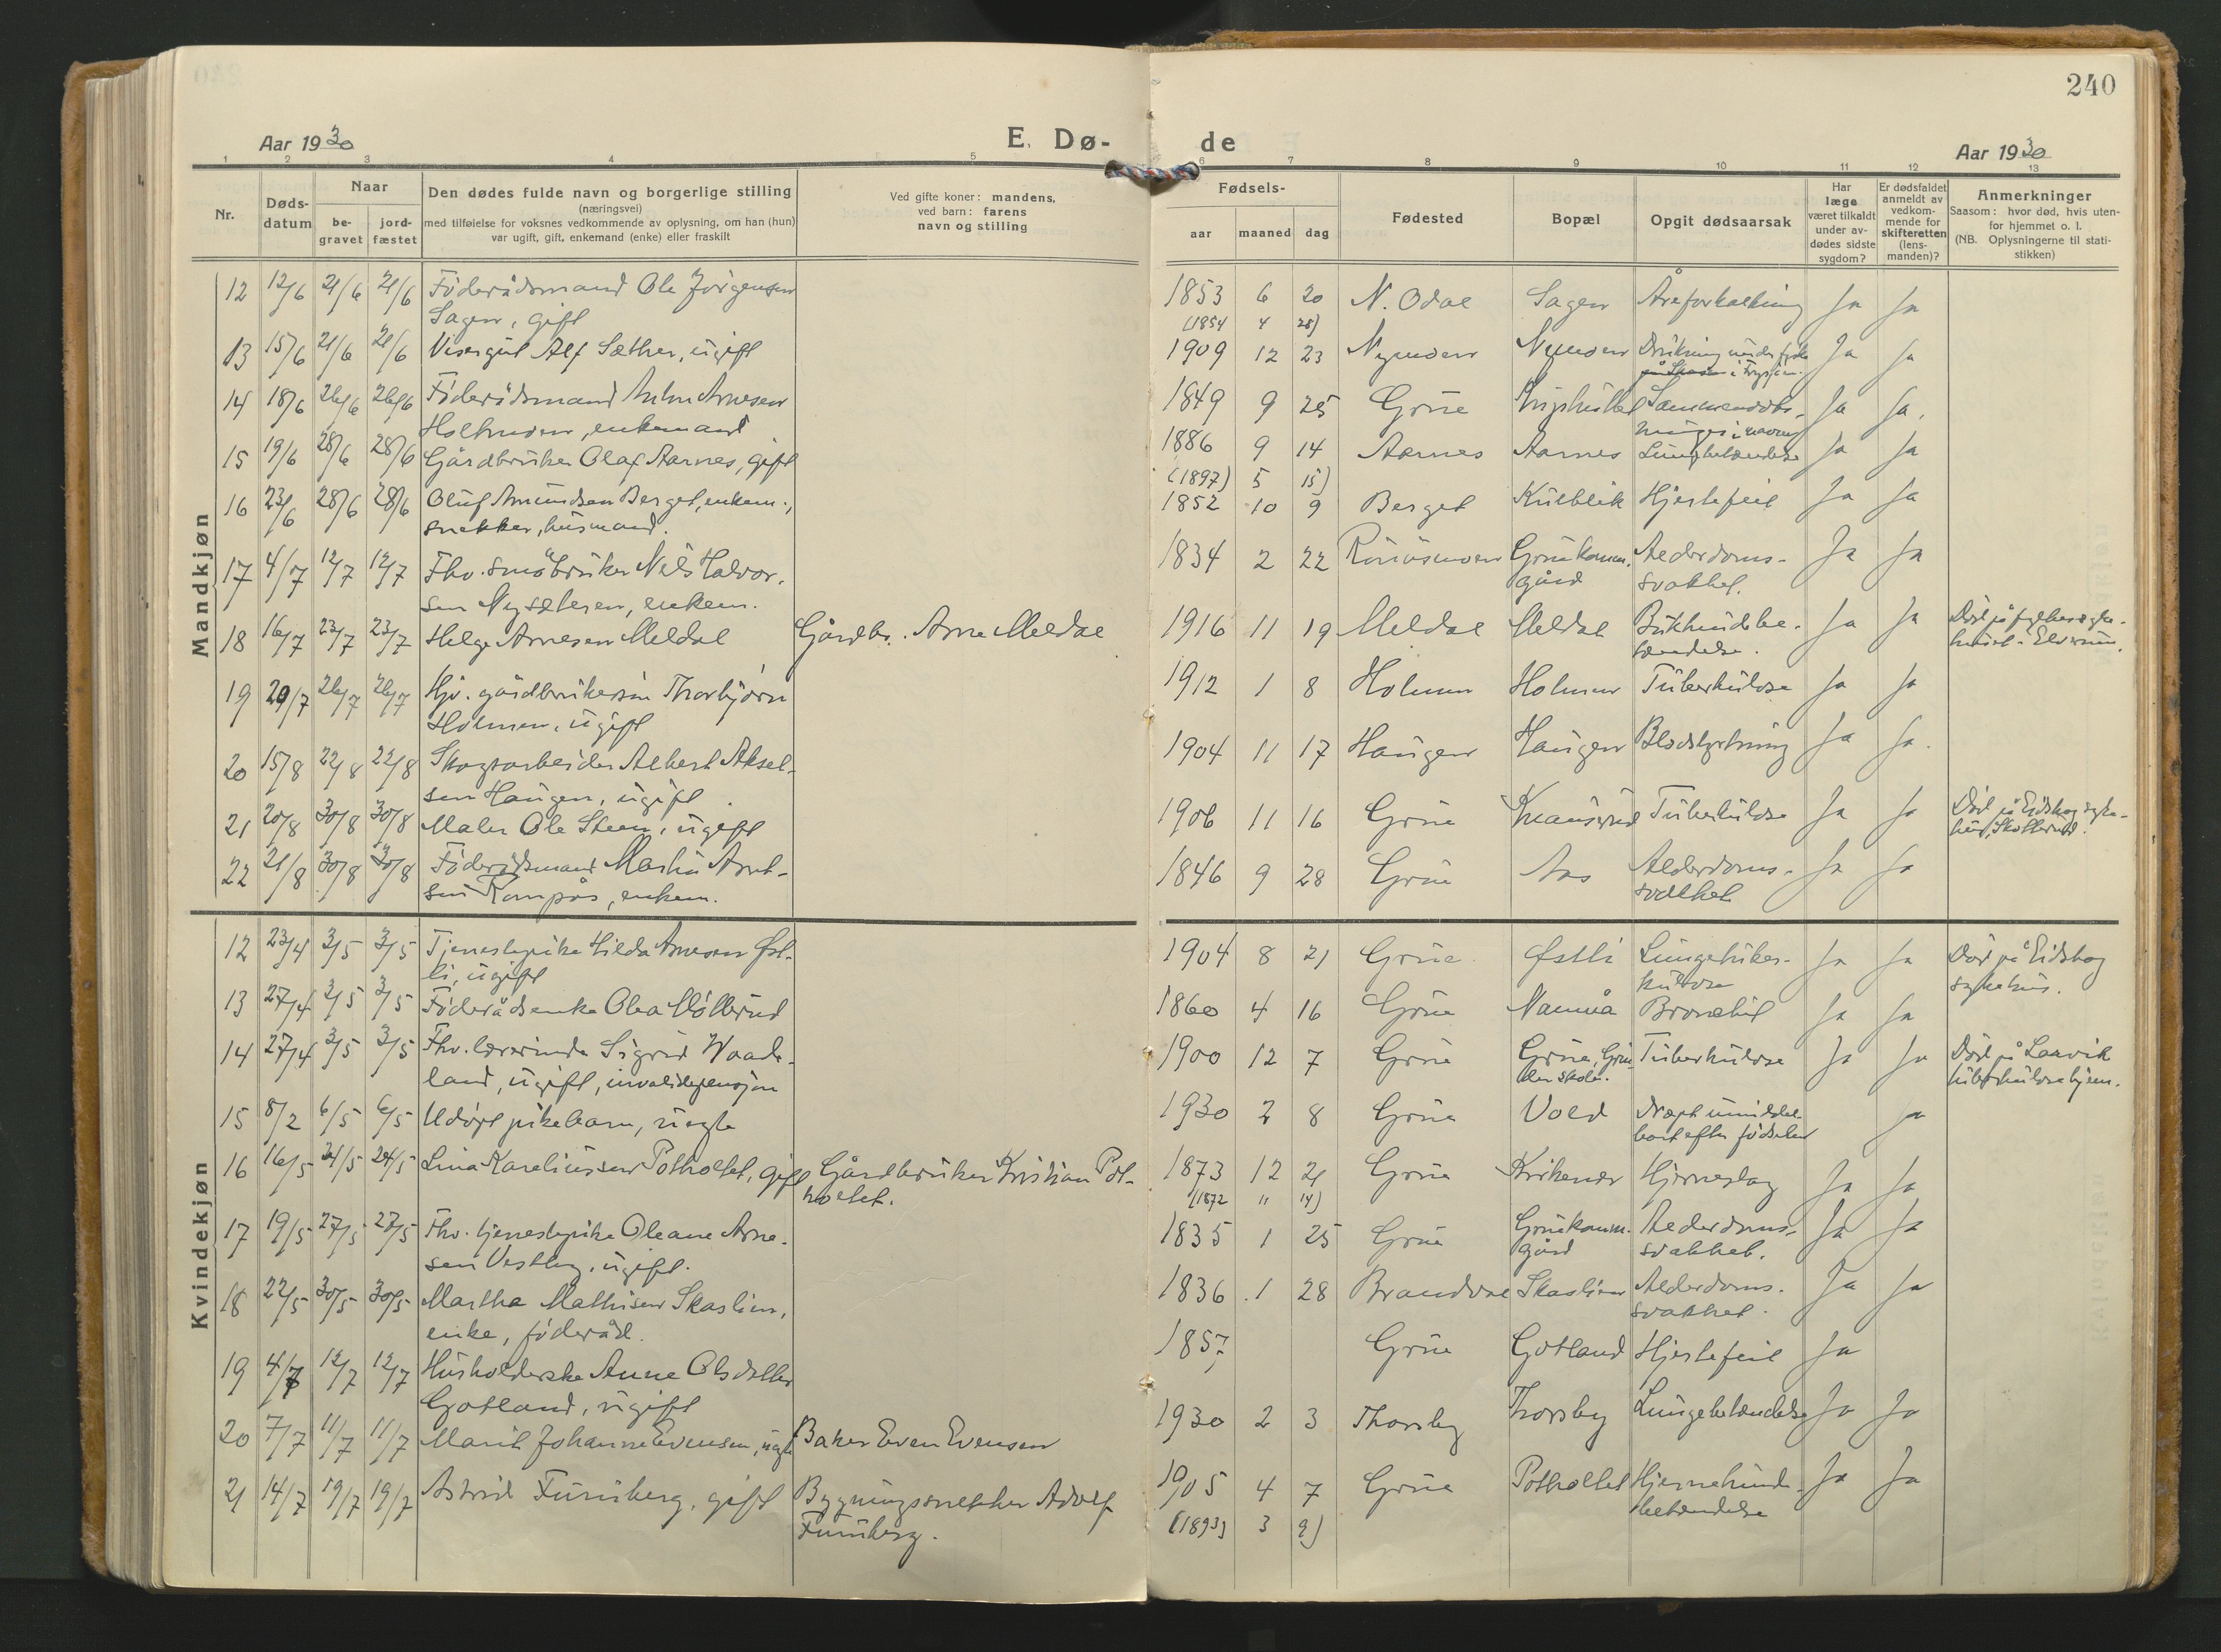 240
Aar 1930
E. Dø-
de
Aar 1930
1 2 3 4 5 6 7 8 9 10 11 12 13
Nr.
Døds-
datum
Naar
be-
gravet
jord-
fæstet
Den dødes fulde navn og borgerlige stilling
(næringsvei)
med tilføielse for voksnes vedkommende av oplysning, om han (hun)
var ugift, gift, enkemand (enke) eller fraskilt
Ved gifte koner: mandens,
ved barn: farens
navn og stilling
Fødsels-
aar maaned dag
Fødested
Bopæl
Opgit dødsaarsak
Har
læge
været tilkaldt
under av-
dødes sidste
sygdom?
Er dødsfaldet
anmeldt av
vedkom-
mende for
skifteretten
(lens-
manden)?
Anmerkninger
Saasom: hvor død, hvis uten-
for hjemmet o. l.
(NB. Oplysningerne til stati-
stikken)
Mandkjøn
12 12/6 21/6 21/6 Føderådsmand Ole Jørgensen 1853 6 20 N. Odal Sagen Åreforkalkning Ja Ja
Sagen, gift (1854 4 28)
13 15/6 21/6 21/6 Visergut Alf Sæther, ugift 1909 12 23 Nymoen Nymoen Drukning under Ja Ja
14 18/6 26/6 26/6 Føderådsmand Anton Arnesen 1849 9 25 Grue Ja Ja.
enkemand
15 19/6 28/6 28/6 Gårdbruker Olaf Aarnes, gift 1886 9 14 Aarnes Aarnes Lungebetændelse Ja Ja
(1897) 5 15)
16 23/6 28/6 28/6 Oluf Amundsen Berget, enkem., 1852 10 9 Berget Kulblik Hjertefeil Ja Ja
snekker, husmand.
17 4/7 12/7 12/7 Fhv. småbruker Nils Halvor- 1834 2 22 Gruekomm. Alderdoms- Ja Ja
sen Nysæteren, enkem. gård svakhet.
18 16/7 23/7 23/7 Helge Arnesen Meldal Gårdbr. Arne Meldal 1916 11 19 Meldal Meldal Bukhindebe- Ja Ja Død på fylkessyke-
tændelse. huset i Elverum.
19 20/7 26/7 26/7 Hjv. gårdbrukersøn Thorbjørn 1912 1 8 Holmen Holmen Tuberkulose Ja Ja
Holmen, ugift
20 15/8 22/8 22/8 Skogsarbeider Albert Aksel- 1904 11 17 Haugen Haugen Blodstyrtning Ja Ja.
sen Haugen, ugift
21 20/8 30/8 30/8 Maler Ole Steen, ugift 1906 11 16 Grue Knausrud Tuberkulose Ja Ja Død på Eidskog syke-
hus, Skotterud.
22 21/8 30/8 30/8 Føderådsmand Martin Arnt- 1846 9 28 Grue Aas Alderdoms- Ja Ja
sen Rompås, enkem. svakhet
Kvindekjøn
12 23/4 3/5 3/5 Tjenestepike Hilda Arnesen Øst- 1904 8 21 Grue Østli Lungetuber- Ja Ja Død på Eidskog
li, ugift kulose sykehus.
13 27/4 3/5 3/5 Føderådsenke Olea Møllerud 1860 4 16 Grue Namnå Bronchit Ja Ja
14 27/4 3/5 3/5 Fhv. lærerinde Sigrid Waade- 1900 12 7 Grue Grue, Grue- Tuberkulose Ja Ja Død på Larvik
land, ugift, invalidepensjon der skole. tuberkulosehjem.
15 8/2 6/5 6/5 Udøpt pikebarn, uegte 1930 2 8 Grue Vold Dræpt umiddel- Ja
bart efter fødselen
16 16/5 24/5 24/5 Lina Kareliussen Potholtet, gift Gårdbruker Kristian Pot- 1873 12 21 Grue Kirkenær Hjerneslag Ja Ja
holtet. (1872 11 14)
17 19/5 27/5 27/5 Fhv. tjenestepike Oleane Arne- 1835 1 25 Grue Gruekomm. Alderdoms- Ja Ja
sen Vestby, ugift. gård svakhet.
18 22/5 30/5 30/5 Martha Mathisen Skaslien, 1836 1 28 Brandval Skaslien Alderdoms- Ja Ja
enke, føderåd. svakhet.
19 4/7 12/7 12/7 Husholderske Anne Olsdatter 1857 Grue Gotland Hjertefeil Ja
Gotland, ugift
20 7/7 11/7 11/7 Marit Johanne Evensen, uegte Baker Even Evensen 1930 2 3 Thorsby Thorsby Lungebetændelse Ja Ja
21 14/7 19/7 19/7 Astrid Furuberg, gift Bygningssnekker Adolf 1905 4 7 Grue Potholtet Hjernehinde- Ja Ja
Furuberg. (1893) 3 9) betændelse